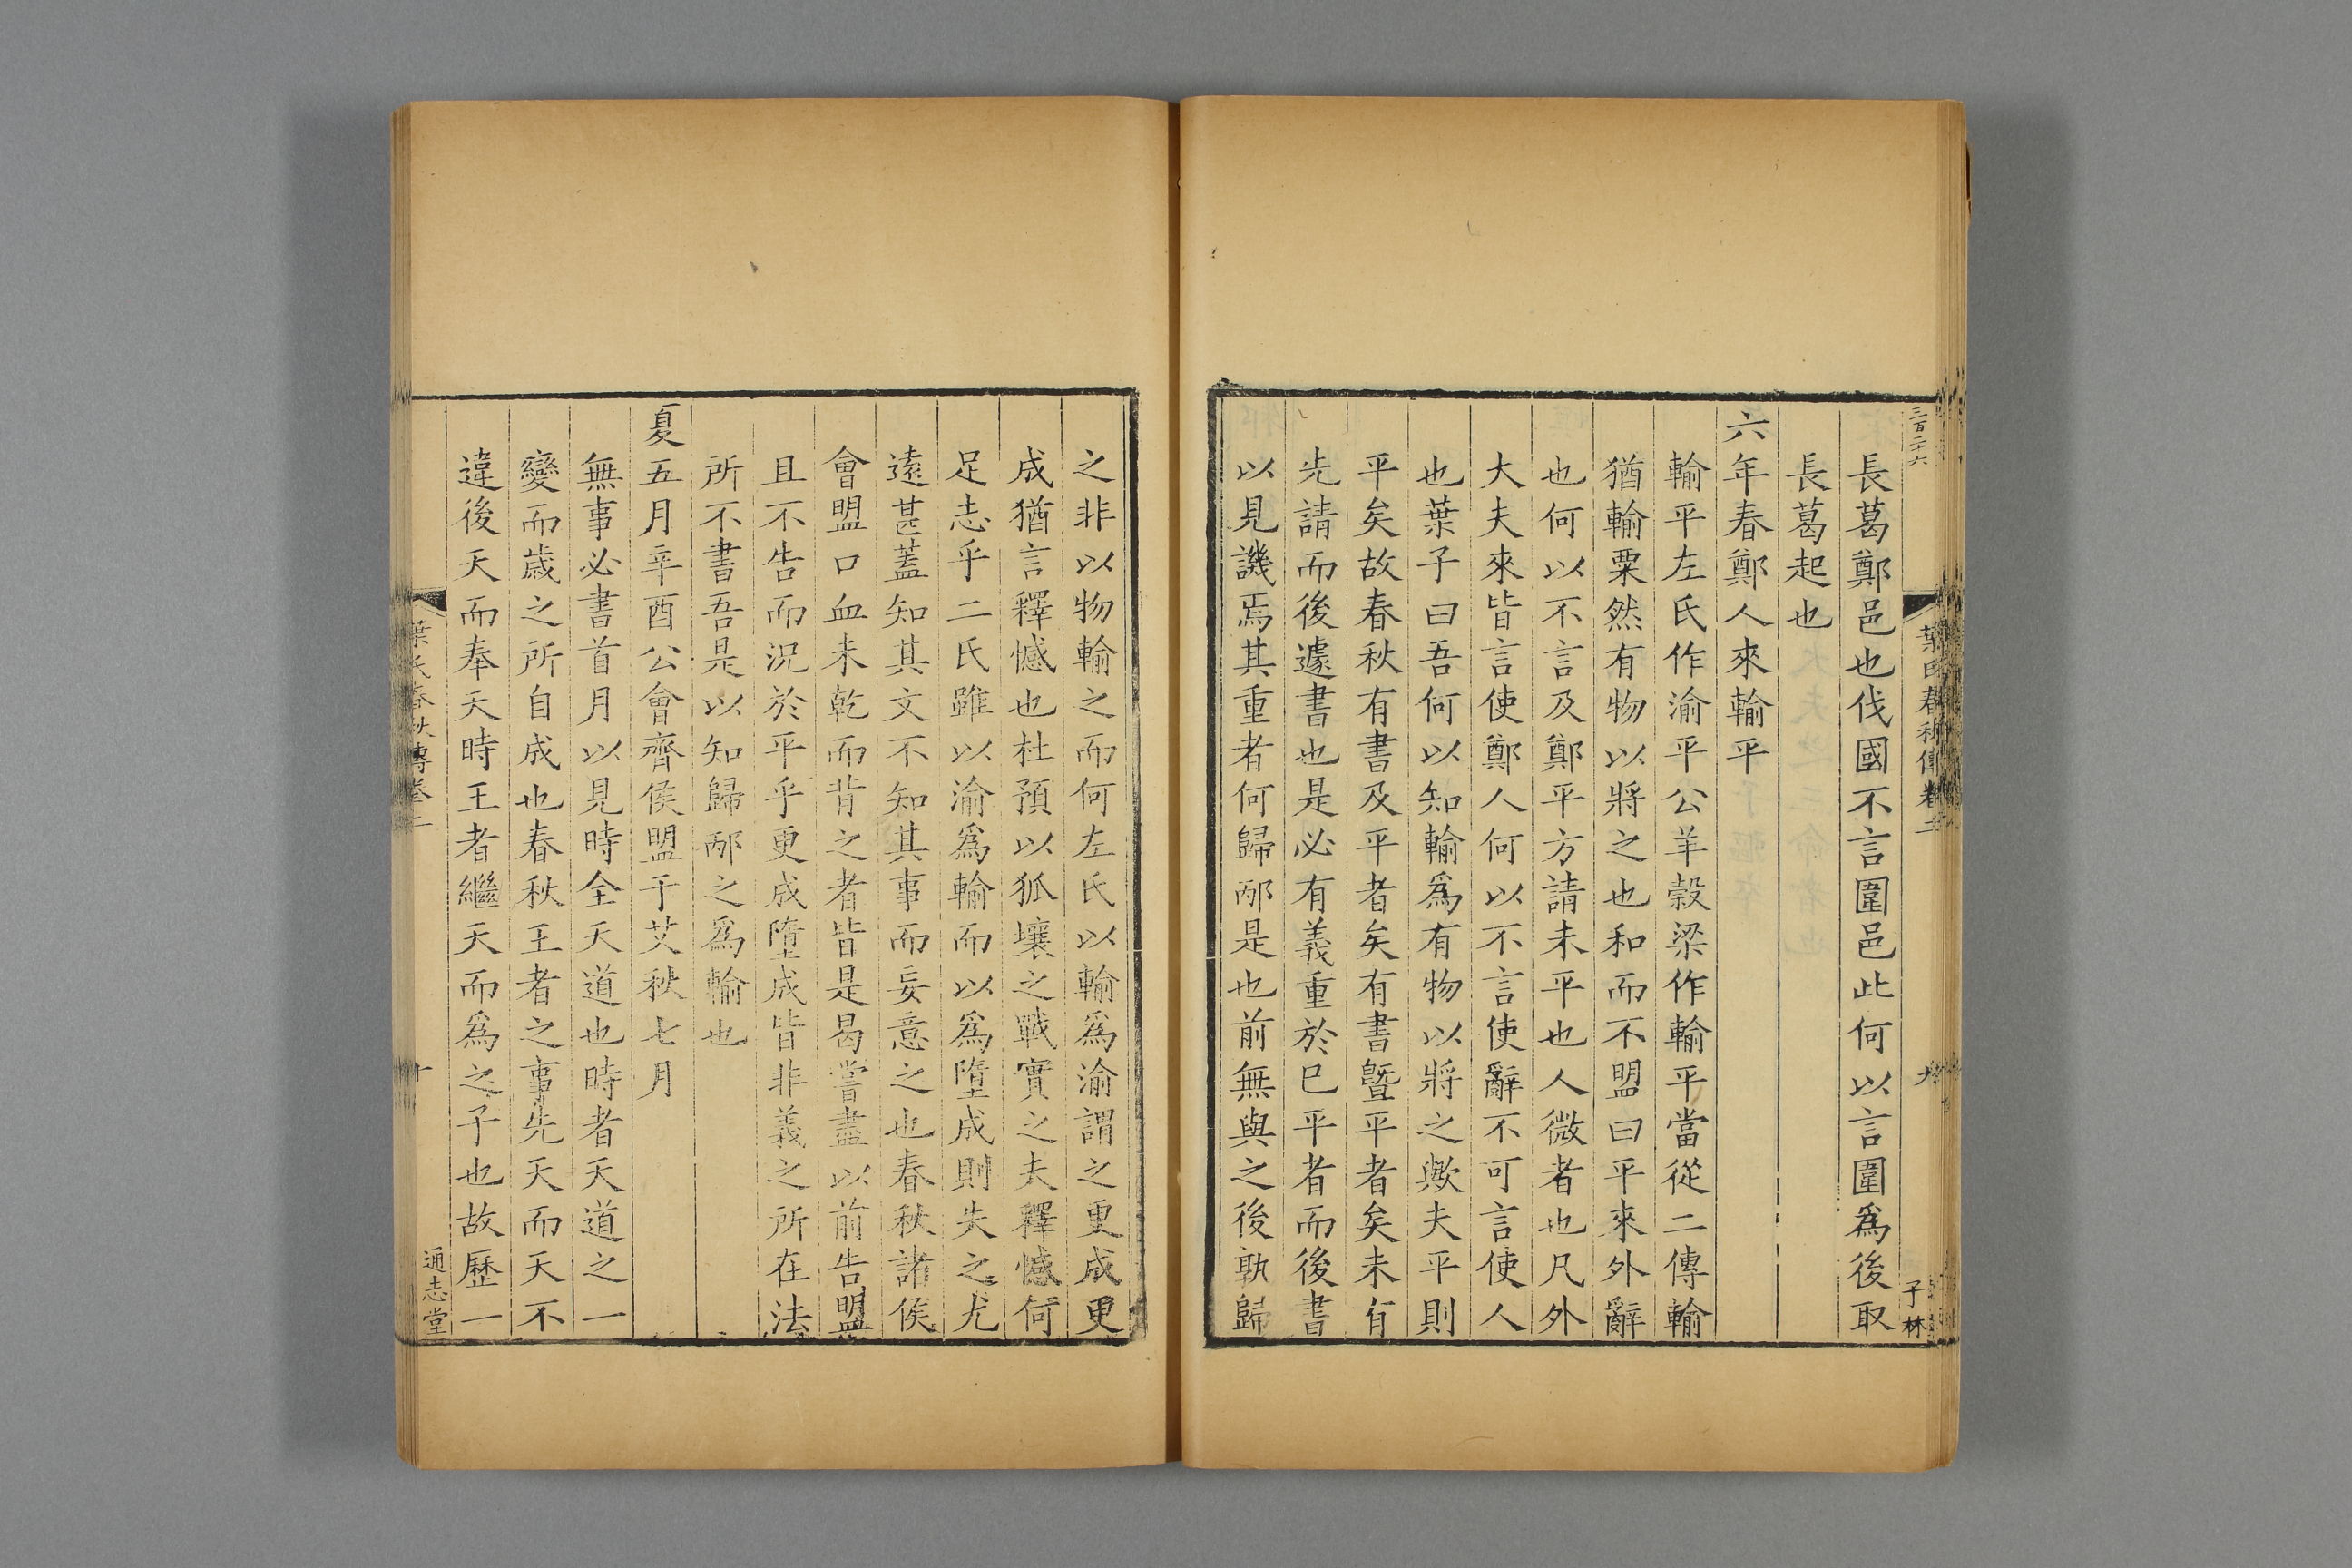 三百二十六
葉氏春秋傳卷二
九
子林
長葛鄭邑也伐國不言圍邑此何以言圍爲後取
長葛起也
六年春鄭人來輸平
輸平左氏作渝平公羊榖梁作輸平當從二傳輸
猶輸粟然有物以將之也和而不盟曰平來外辭
也何以不言及鄭平方請未平也人微者也凡外
大夫來皆言使鄭人何以不言使辭不可言使人
也葉子曰吾何以知輸爲有物以將之歟夫平則
平矣故春秋有書及平者矣有書曁平者矣未有
先請而後遽書也是必有義重於巳平者而後書
以見譏焉其重者何歸邴是也前無與之後孰歸
之非以物輸之而何左氏以輸爲渝謂之更成更
成猶言釋憾也杜預以狐壤之戰實之夫釋憾何
足志乎二氏雖以渝爲輸而以爲墮成則失之尤
遠甚蓋知其文不知其事而妄意之也春秋諸侯
會盟口血未乾而背之者皆是曷嘗盡以前告盟
且不告而況於平乎更成墮成皆非義之所在法
所不書吾是以知歸邴之爲輸也
夏五月辛酉公會齊侯盟于艾秋七月
無事必書首月以見時全天道也時者天道之一
變而歲之所自成也春秋王者之事先天而天不
違後天而奉天時王者繼天而爲之子也故歷一
葉氏春秋傳卷二
十
通志堂